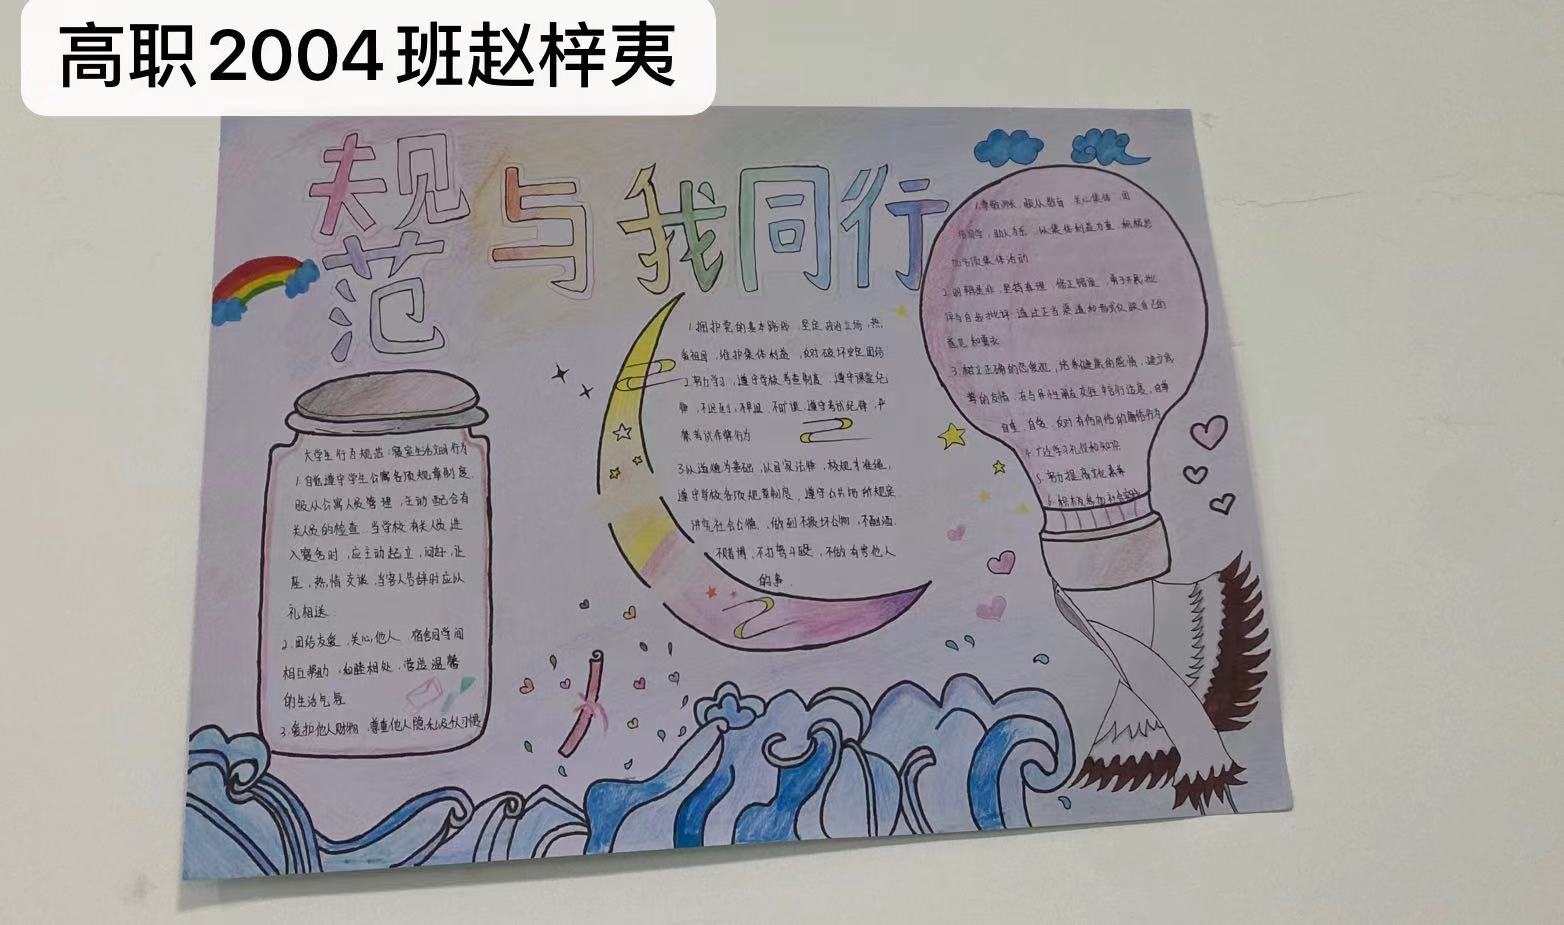 高职2004班赵梓夷
规范与我同行
大学生行为规范：寝室生活文明行为
1.自觉遵守学生公寓各项规章制度.
服从公寓人员管理，主动配合有
关人员的检查.当学校有关人员进
入寝室时，应主动起立，问好，让
座，热情交谈.当客人告辞时应以
礼相送.
2.团结友爱，关心他人.宿舍同学间
相互帮助，和睦相处，营造温馨
的生活气氛
3.爱护他人财物，尊重他人隐私及休习惯
1.拥护党的基本路线.坚定政治立场，热
爱祖国，维护集体利益，反对破坏安定团结
2.努力学习，遵守学校考查制度，遵守课堂纪
律，不迟到，不早退，不旷课.遵守考试纪律，严
禁考试作弊行为
3.以道德为基础，以国家法律，校规为准绳，
遵守学校各项规章制度，遵守公共场所规定
讲究社会公德，做到不损坏公物，不酗酒.
不赌博，不打架斗殴，不做有害他人
的事.
1.尊敬师长，服从教育.关心集体，团
结同学，助人为乐.以集体利益为重，积极参
加各项集体活动
2.明辨是非，坚持真理，修正错误，勇于开展批
评与自我批评.通过正当渠道和形式反映自己的
意见和要求
3.树立正确的恋爱观，培养健康的感情，建立真
挚的友情，在与异性朋友交往中言行适度，自尊
自重，自爱，反对有伤风俗的庸俗行为
4.广泛学习礼仪和知识
5.努力提高文化素养
6.积极参加社会实践